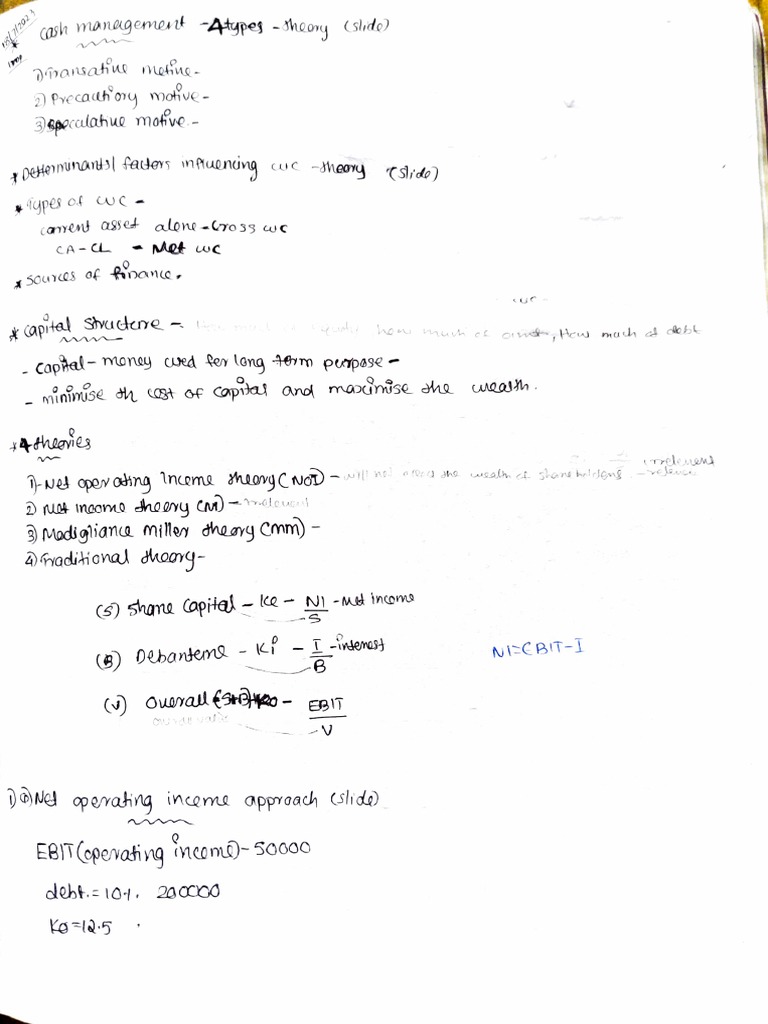 18/7/2023
* Cash management - 4 types - theory (slide)
1) Transative motive -
2) Precautiory motive -
3) speculative motive -
* Determinants/ factors influencing wc - theory (slide)
* Types of wc -
current asset alone - Gross wc
CA - CL - Net wc
* sources of finance.
* Capital Structure - How much of equity how much of , How much of debt
- Capital - money used for long term purpose -
- minimise th cost of capital and maximise the wealth.
* 4 theories
irrelevent
1) - Net operating income theory (NOI) - will not affect the wealth of shareholders -
2) Net income theory (NI) - irrelevant
3) Modigliance miller theory (mm) -
4) Traditional theory -
(S) Share capital - Ke - NI/S - net income
(B) Debenteme - Ki - I/B - interest
NI = EBIT - I
(V) Overall (S+B) - EBIT/V
1) Net operating income approach (slide)
EBIT (operating income) - 50000
debt = 10%. 200000
Ko = 12.5